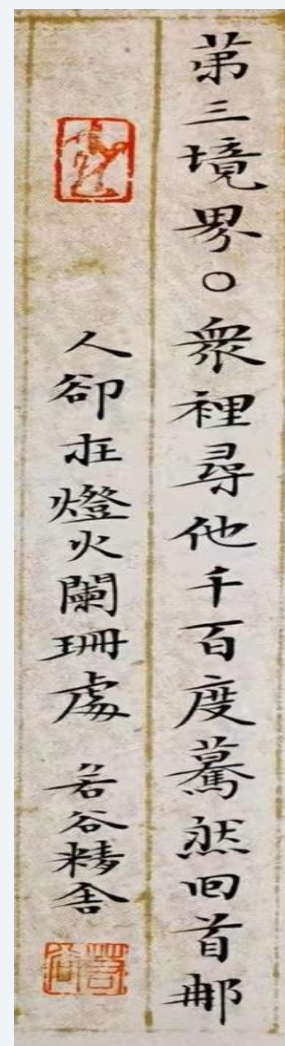 第三境界○衆裡尋他千百度驀然回首那
人卻在燈火闌珊處 若谷精舍